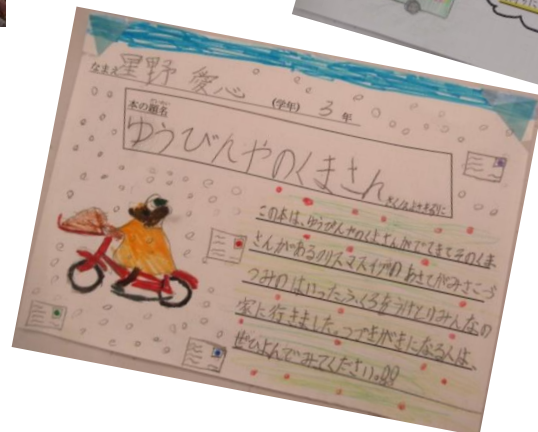 なまえ 星野 愛心
(学年) 3年
本の題名
ゆうびんやのくまさん
この本は、ゆうびんやのくまさんがでてきてそのくま
さんがあるクリスマスイブのあさてがみさこづ
つみのはいったふくろをうけとりみんなの
家に行きました。つづきがきになる人は、
ぜひよんでみてください。!!